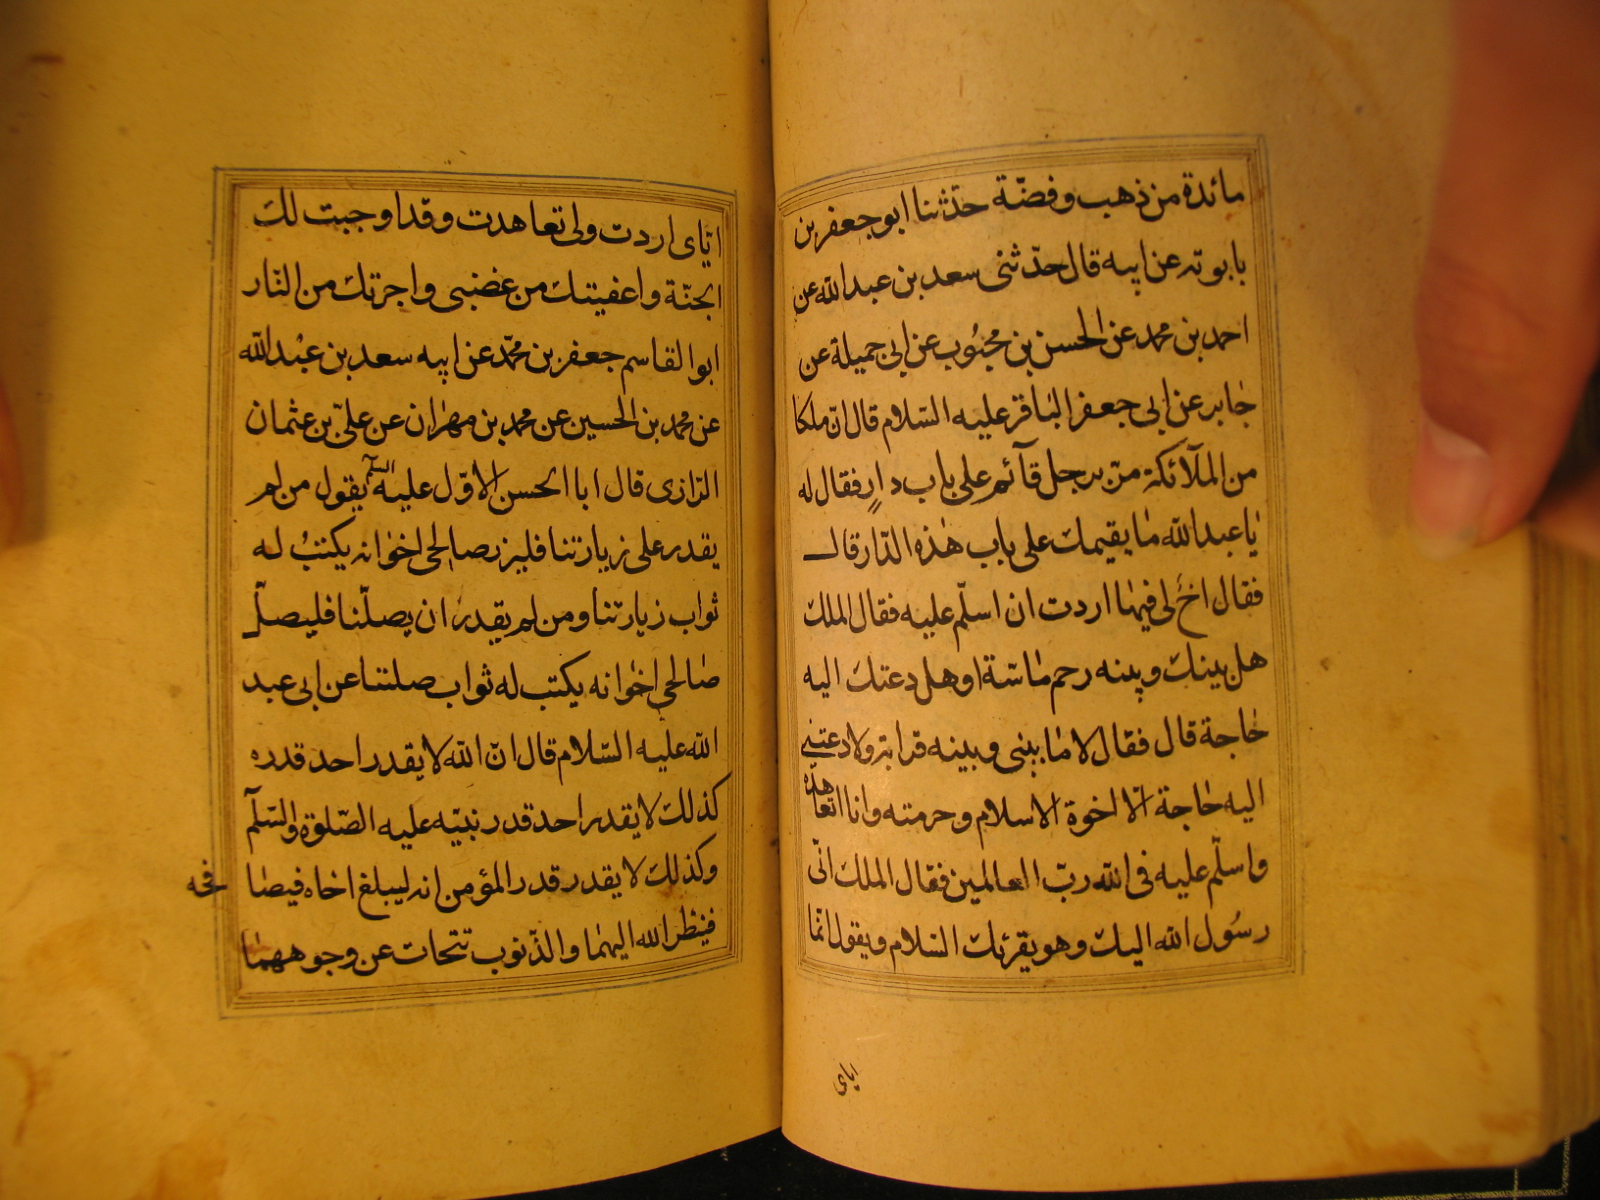 مائدة من ذهب وفضّة حدّثنا ابو جعفر بن
بابويه عن ابيه قال حدّثنى سعد بن عبد الله عن
احمد بن محمد عن الحسن بن محبُوب عن ابى جميلة عن
جابر عن ابى جعفر الباقر عليه السّلام قال انّ ملكا
من الملآئكة مرّ برجل قآئم على باب دارٍ فقال له
يا عبد الله ما يقيمك على باب هٰذه الدّار قال
فقال اخٌ لى فيها اردت ان اسلّم عليه فقال الملك
هل بينك وبينه رحم ماسّة او هل دعتك اليه
حاجة قال فقال لا ما بينى وبينه قرابة ولا دعتنى
اليه حاجة الّا اخوة الاسلام وحرمته وانا اتعاهده
واسلّم عليه فى الله ربّ العالمين فقال الملك انّى
رسُول الله اليك وهو يقرئك السّلام ويقول انّما
اياى
ايّاى اردت ولى تعاهدت وقد اوجبت لك
الجنّة واعفيتك من غضبى واجرتك من النّار
ابو القاسم جعفر بن محمّد عن ابيه سعد بن عبْد الله
عن محمد بن الحسين عن محمد بن مهران عن علىّ بن عثمان
الرّازى قال ابا الحسن الاوّل عليه السلم يقول من لم
يقدر على زيارتنا فليزر صالحى اخوانه يكتبُ له
ثواب زيارتنا ومن لم يقدر ان يصلّنا فليصلّ
صالحى اخوانه يكتب له ثواب صلتنا عن ابى عبد
الله عليه السّلام قال انّ الله لا يقدر احد قدره
كذلك لا يقدر احد قدر نبيّه عليه الصّلوة والسّلم
وكذلك لا يقدر قدر المؤمن انه ليبلغ اخاه فيصا
فحه
فينظر الله اليهما والذّنوب تتحات عن وجوههما